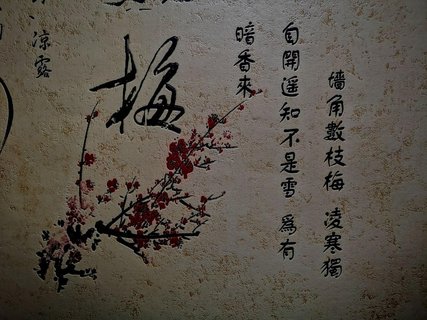 墙角數枝梅 凌寒獨
自開遥知不是雪 為有
暗香來
梅
凉露